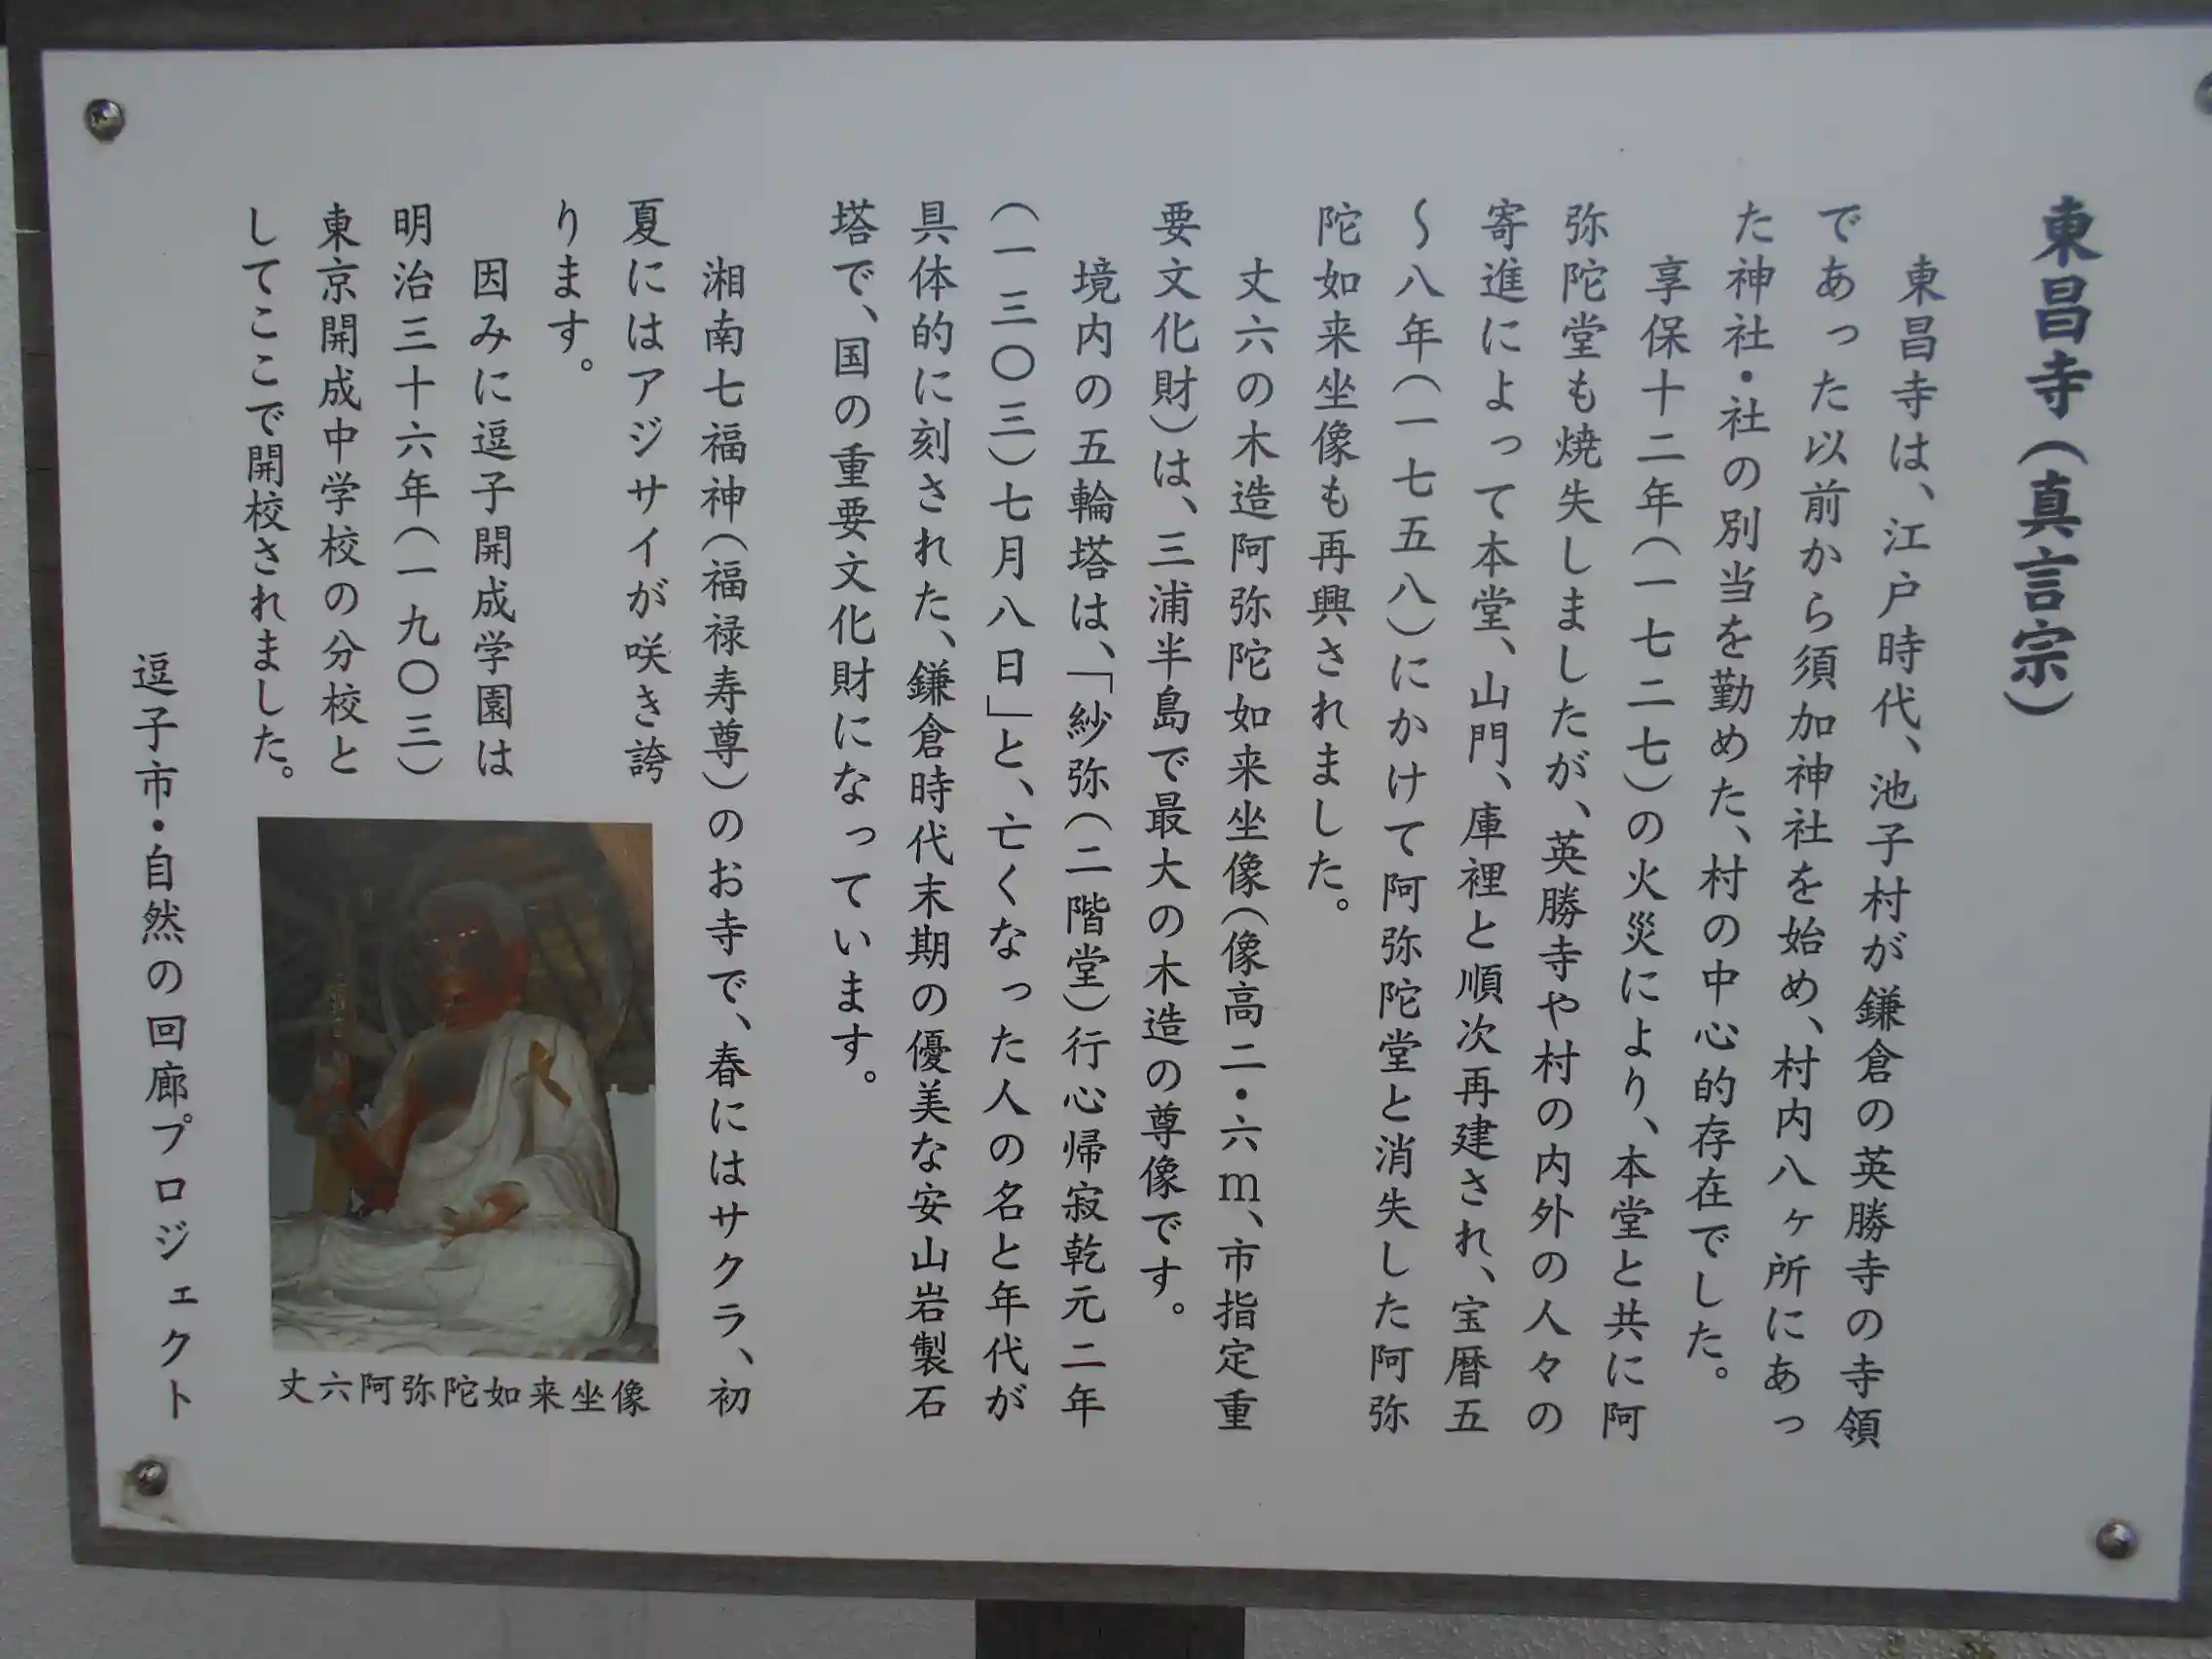 東昌寺(真言宗)
東昌寺は、江戸時代、池子村が鎌倉の英勝寺の寺領
であった以前から須加神社を始め、村内八ヶ所にあっ
た神社・社の別当を勤めた、村の中心的存在でした。
享保十二年(一七二七)の火災により、本堂と共に阿
弥陀堂も焼失しましたが、英勝寺や村の内外の人々の
寄進によって本堂、山門、庫裡と順次再建され、宝暦五
～八年(一七五八)にかけて阿弥陀堂と消失した阿弥
陀如来坐像も再興されました。
丈六の木造阿弥陀如来坐像(像高二・六m、市指定重
要文化財)は、三浦半島で最大の木造の尊像です。
境内の五輪塔は、「紗弥(二階堂)行心帰寂乾元二年
(一三〇三)七月八日」と、亡くなった人の名と年代が
具体的に刻された、鎌倉時代末期の優美な安山岩製石
塔で、国の重要文化財になっています。
湘南七福神(福禄寿尊)のお寺で、春にはサクラ、初
夏にはアジサイが咲き誇
ります。
因みに逗子開成学園は
明治三十六年(一九〇三)
東京開成中学校の分校と
してここで開校されました。
丈六阿弥陀如来坐像
逗子市・自然の回廊プロジェクト